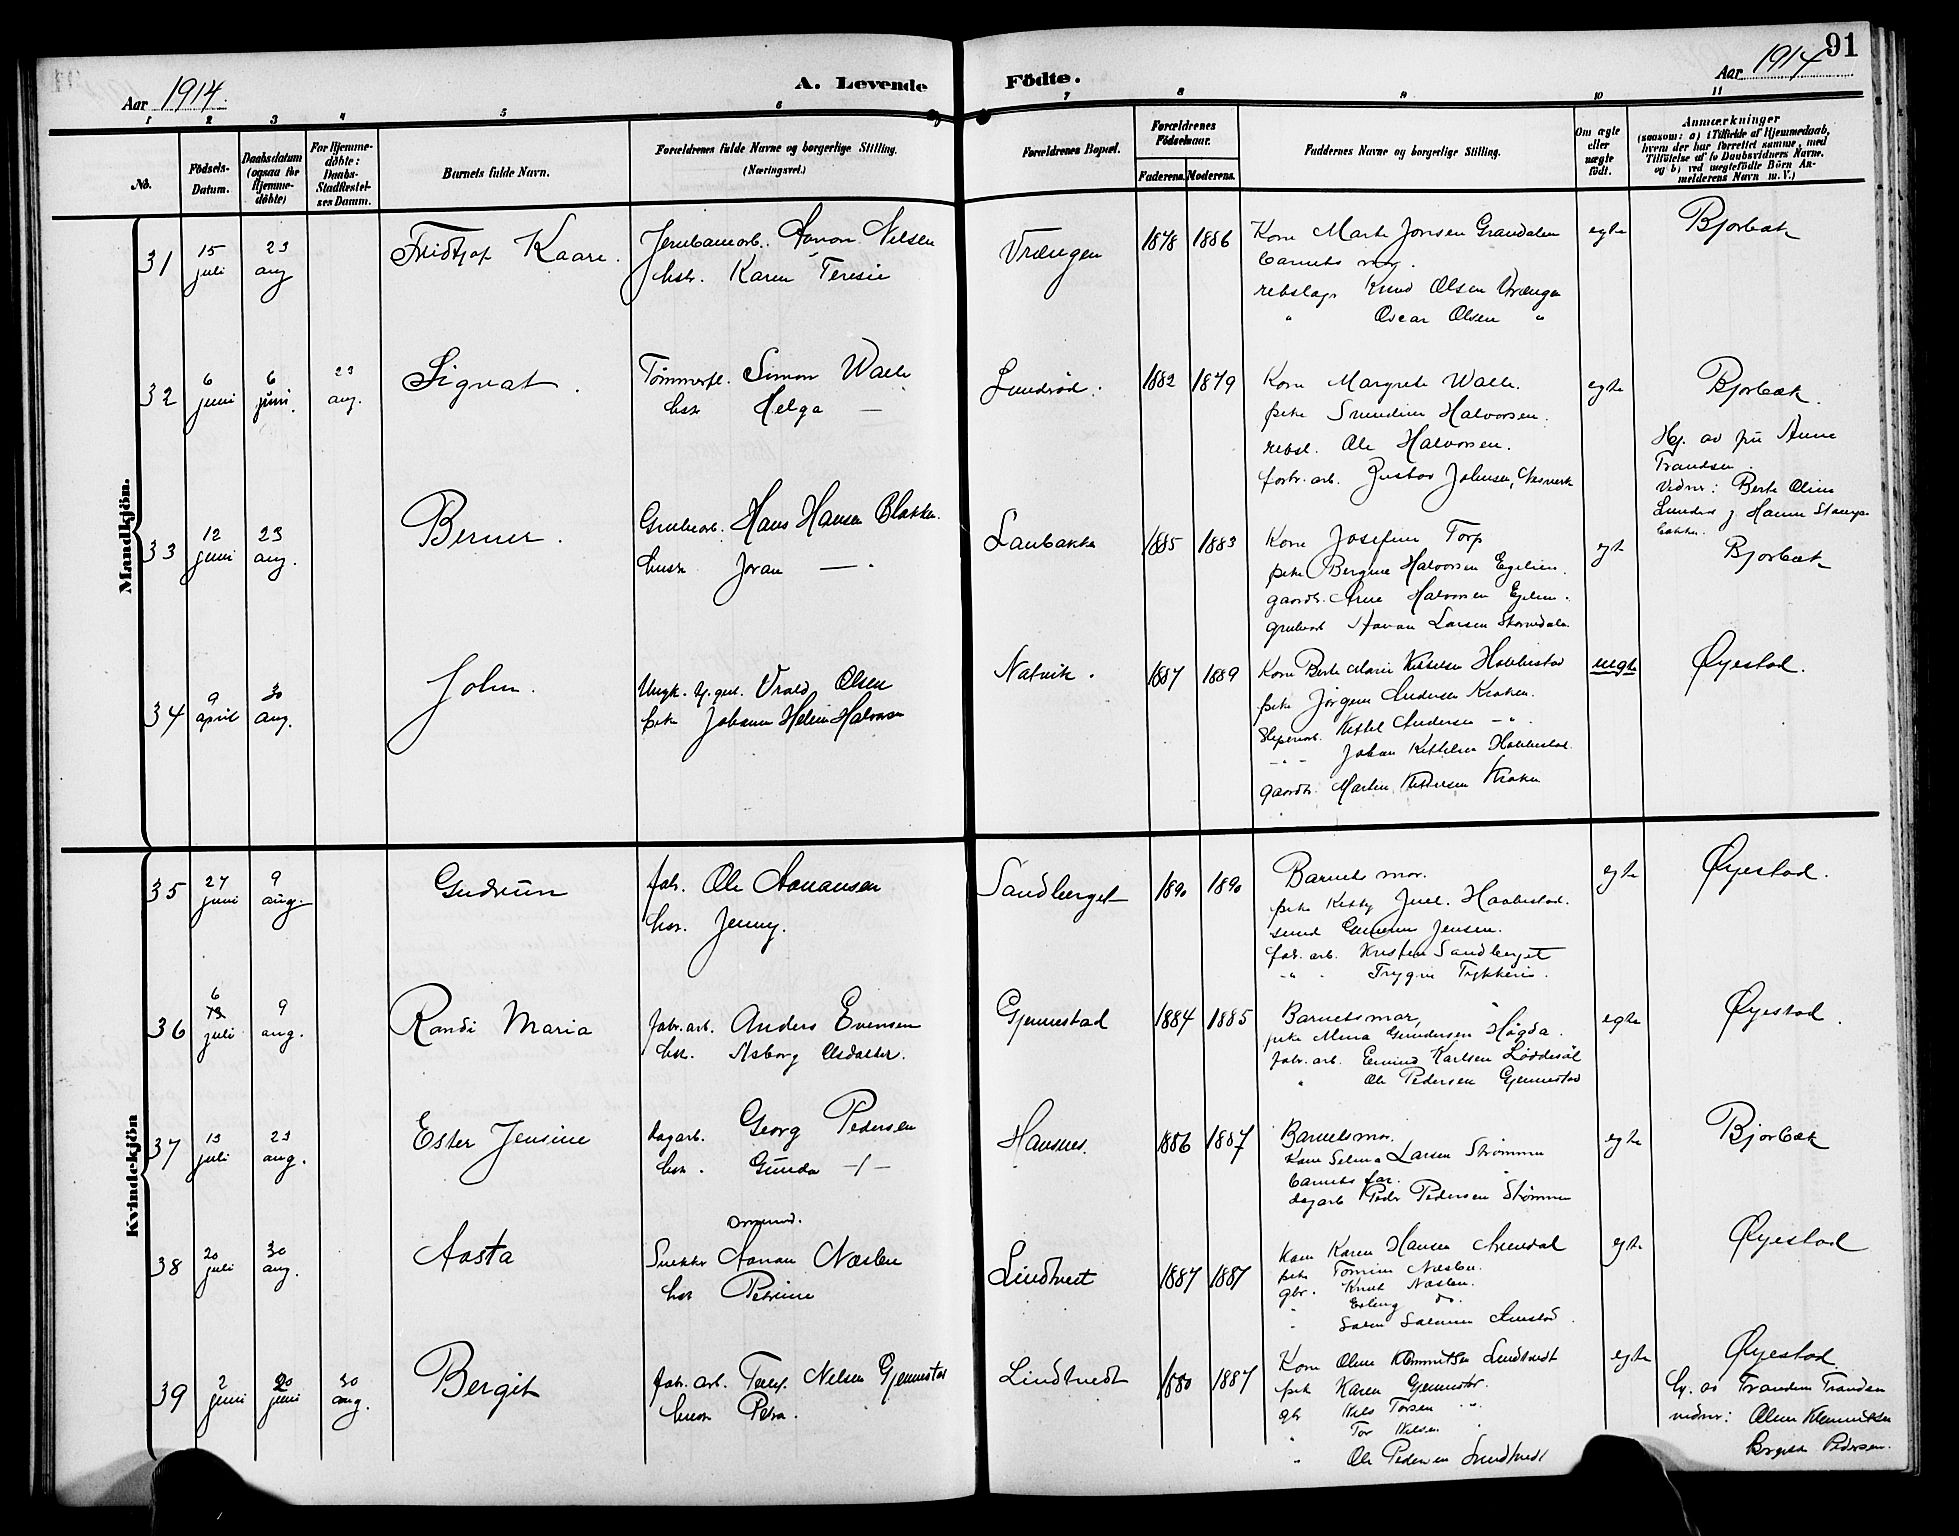 91
Aar 1914.
A. Levende
Födte.
Aar 1914
1 2 3 4 5 6 7 8 9 10 11
No.
Födsels-
Datum.
Daabsdatum
(ogsaa for
Hjemme-
döbte)
For Hjemme-
döbte:
Daabs-
Stadfestel-
ses Datum.
Barnets fulde Navn.
Forældrenes fulde Navne og borgerlige Stilling.
(Næringsvei.)
Forældrenes Bopæl.
Forældrenes
Födselsaar.
Faderens. Moderens.
Faddernes Navne og borgerlige Stilling.
Om ægte
eller
uægte
födt.
Anmærkninger
(saasom: a) i Tilfælde af Hjemmedaab,
hvem der har forrettet samme, med
Tilföielse af to Daabsvidners Navne.
og b) ved uegtefödte Börn An-
melderens Navn m. V.)
Mandkjön.
31 15 juli 23 aug Fridtjof Kaare.
Jernbanearb. Aanon Nilsen
hstr. Karen Teresie
Vrængen 1878 1886
Kone Marte Jonsen Grandalen
barnets mor.
rebslag. Knud Olsen Vrængen
" Oscar Olsen "
egte Bjorbæk
32 6 juni 6 juni. 23 aug. Sigvat.
Tömmerfl. Simon Walle
hstr Helga —
Lundröd. 1882 1879
Kone Margrete Walle.
pike Smundine Halvorsen.
rebsl. Ole Halvorsen.
forbr. arb. Gustav Johnsen,
egte Bjorbæk.
Hj. av fru Anne
Trandsen.
Vidner: Berte Oline
Lunderö g Hanne Stampe-
bakken.
33 12 juni 23 aug. Berner.
Grubearb. Hans Hansen Blakken.
hustr Joran — .
Laubakke 1885 1883
Kone Josefine Torp
pike Bergine Halvorsen Egelien.
gaardbr. Arne Halvorsen Egelien.
grubearb Aanon Larsen Storedalen
egte Bjorbæk
34 9 april 30 aug. John.
Ungk. Vrald Olsen
pike Johanne Heline Halvorsen
Natvik. 1887 1889
Kone Berte Marie Kittelsen Hobbestad
pike Jörgine Andersen Kroken.
Sliperiarb. Kittel Andersen — " .
— " — Johan Kittelsen Hobbestad.
gaardbr. Martin Pettersen Kroken
uegte Öyestad.
Kvindekjön
35 27 juni 9 aug. Gudrun
fabr. Ole Aanansen
hstr. Jenny.
Sandberget 1890 1890
Barnets mor.
pike Kitty Juel. Haabestad.
smed Gunerius Jensen.
fabr. arb. Kristen Sandberget
" " Trygve
egte Öyestad.
36 6 juli 9 aug. Randi Maria
fabr. arb. Anders Evensen
hstr. Asborg Olsdatter.
Gjennestad 1884 1885
Barnets mor,
pike Mina Gundersen Högda.
fabr. arb. Eivind Karlsen Löddesöl
" Ole Pedersen Gjennestad
egte Öyestad.
37 13 juli 23 aug. Ester Jensine
dagarb. Georg Pedersen
hstr. Gunda — " —
Hansnes. 1886 1887
Barnets mor.
Kone Selma Larsen Strömmen
barnets far.
dagarb Peder Pedersen Strömmen
egte Bjorbæk
38 20 juli 30 aug. Aasta
Osmund.
Snekker Aanon Næslen
hstr Petrine
Lindtveit 1887 1887
Kone Karen Hansen Arendal
pike Tomine Næslen.
gbr. Knut Næslen.
" Erling do.
egte Öyestad
39 2 juni 20 juni 30 aug. Bergit
fabr. arb. Terej. Nilsen Gjennestad
hustr Petra.
Lindtvedt 1880 1887
Kone Oline Klemmitsen Lindtvedt
pike Karen Gjennestad.
gbr Nils Torsen " "
" Tor Nilsen
" Ole Pedersen Lindtvedt
egte Öyestad.
hj. av Trandine Trandsen
vidner: Oline Klemmitsen
Birgitte Pedersen.